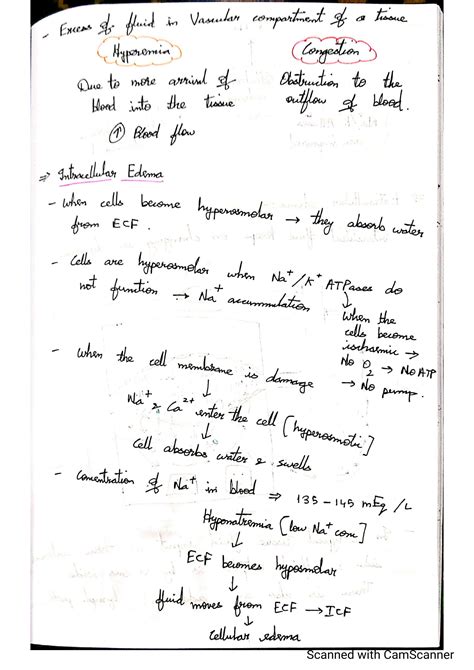 - Excess of fluid in Vascular compartment of a tissue
Hyperemia
Congestion
Due to more arrival of
blood into the tissue
↑ Blood flow
Obstruction to the
outflow of blood.
⇒ Intracellular Edema
- When cells become hyperosmolar → they absorb water
from ECF.
- Cells are hyperosmolar when Na⁺/K⁺ ATPases do
not function → Na⁺ accumulation
↓
When the
cells become
ischaemic →
No O₂ → No ATP
→ No pump.
- When the cell membrane is damage
↓
Na⁺ & Ca²⁺ enter the cell [hyperosmotic]
↓
Cell absorbs water & swells
- Concentration of Na⁺ in blood ⇒ 135-145 mEq/L
Hyponatremia [low Na⁺ conc]
↓
ECF becomes hyposmolar
↓
fluid moves from ECF → ICF
↓
Cellular edema
Scanned with CamScanner